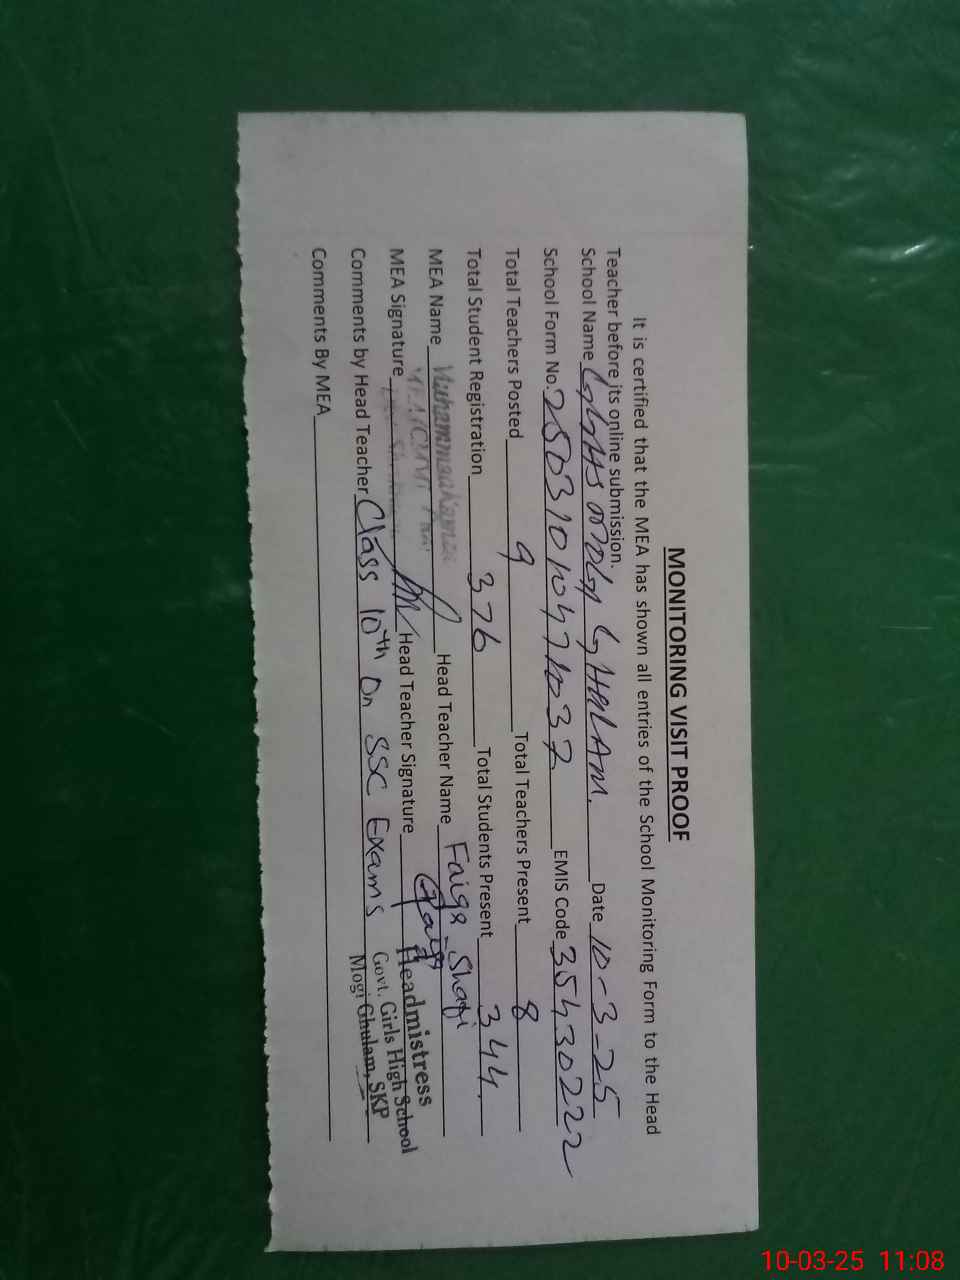 MONITORING VISIT PROOF
It is certified that the MEA has shown all entries of the School Monitoring Form to the Head
Teacher before its online submission.
School Name GGHS MOGI GHULAM. Date 10-3-25
School Form No. EMIS Code 35430222
Total Teachers Posted 9 Total Teachers Present 8
Total Student Registration 376 Total Students Present 344
MEA Name Muhammad Head Teacher Name Faiqa Shafi
MEA Signature Head Teacher Signature Faiqa
Headmistress
Govt. Girls High School
Mogi Ghulam, SKP
Comments by Head Teacher Class 10th On SSC Exams
Comments By MEA
10-03-25 11:08